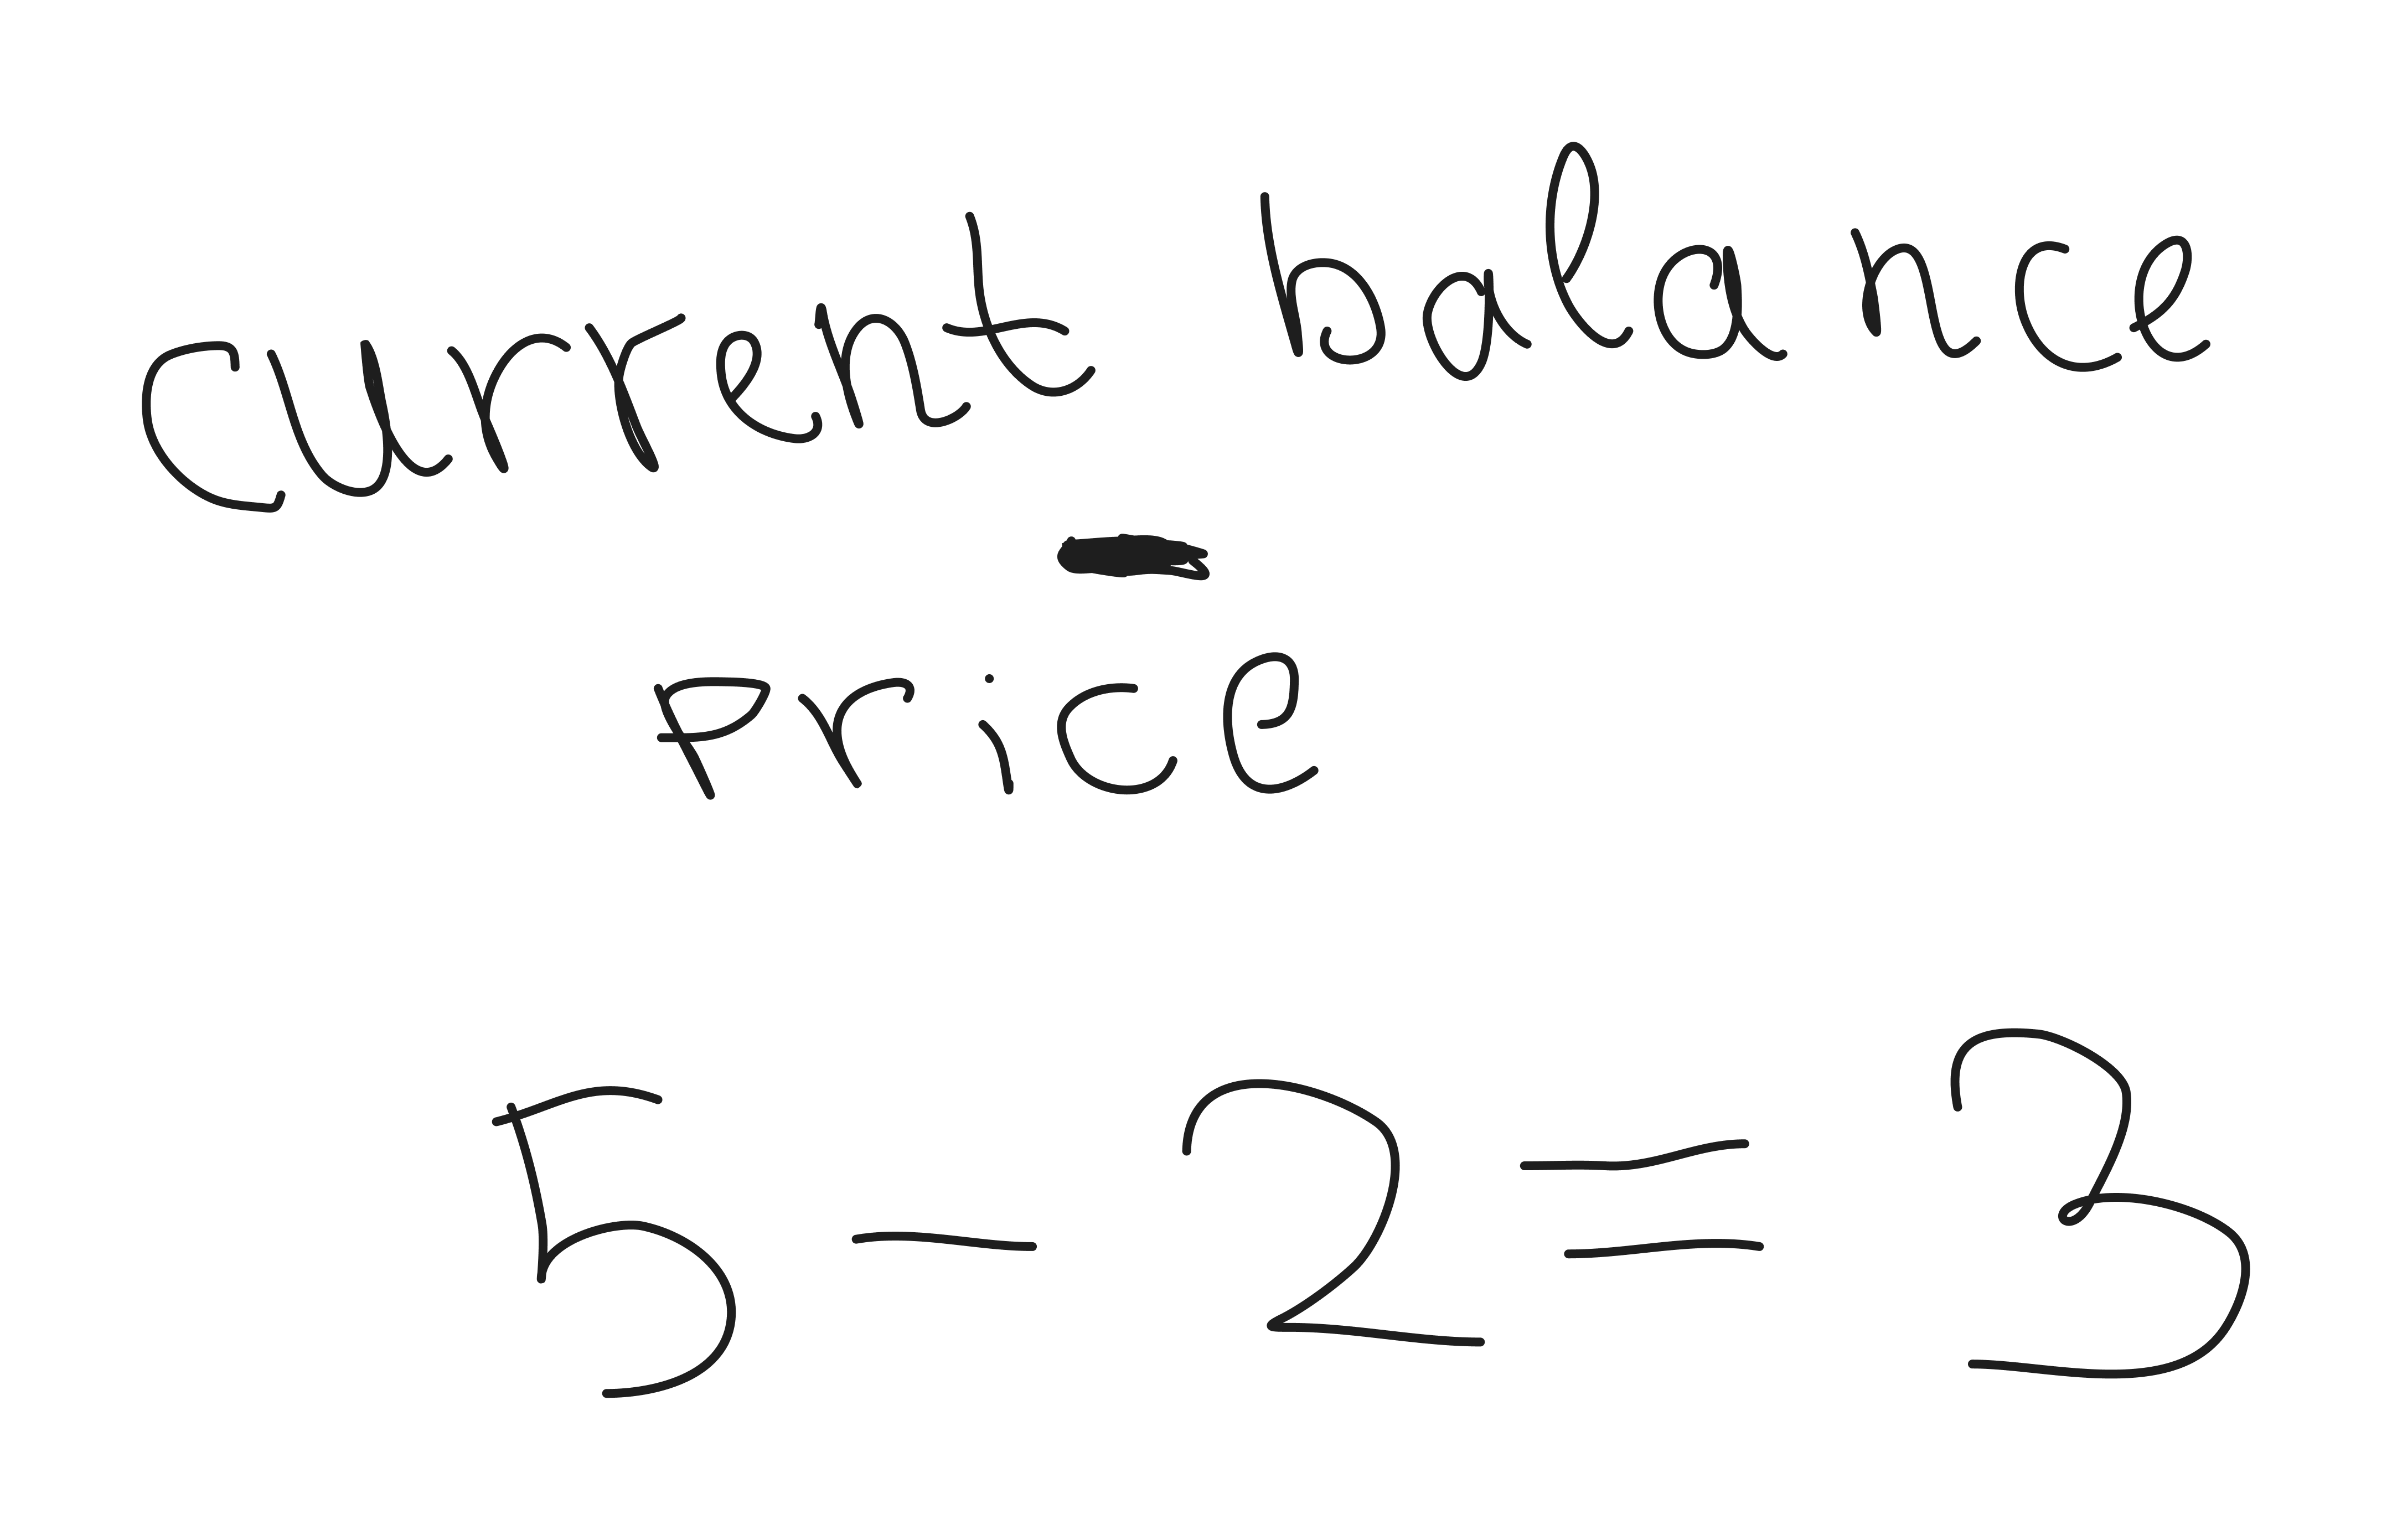 current balance
-
Price
5 - 2 = 3